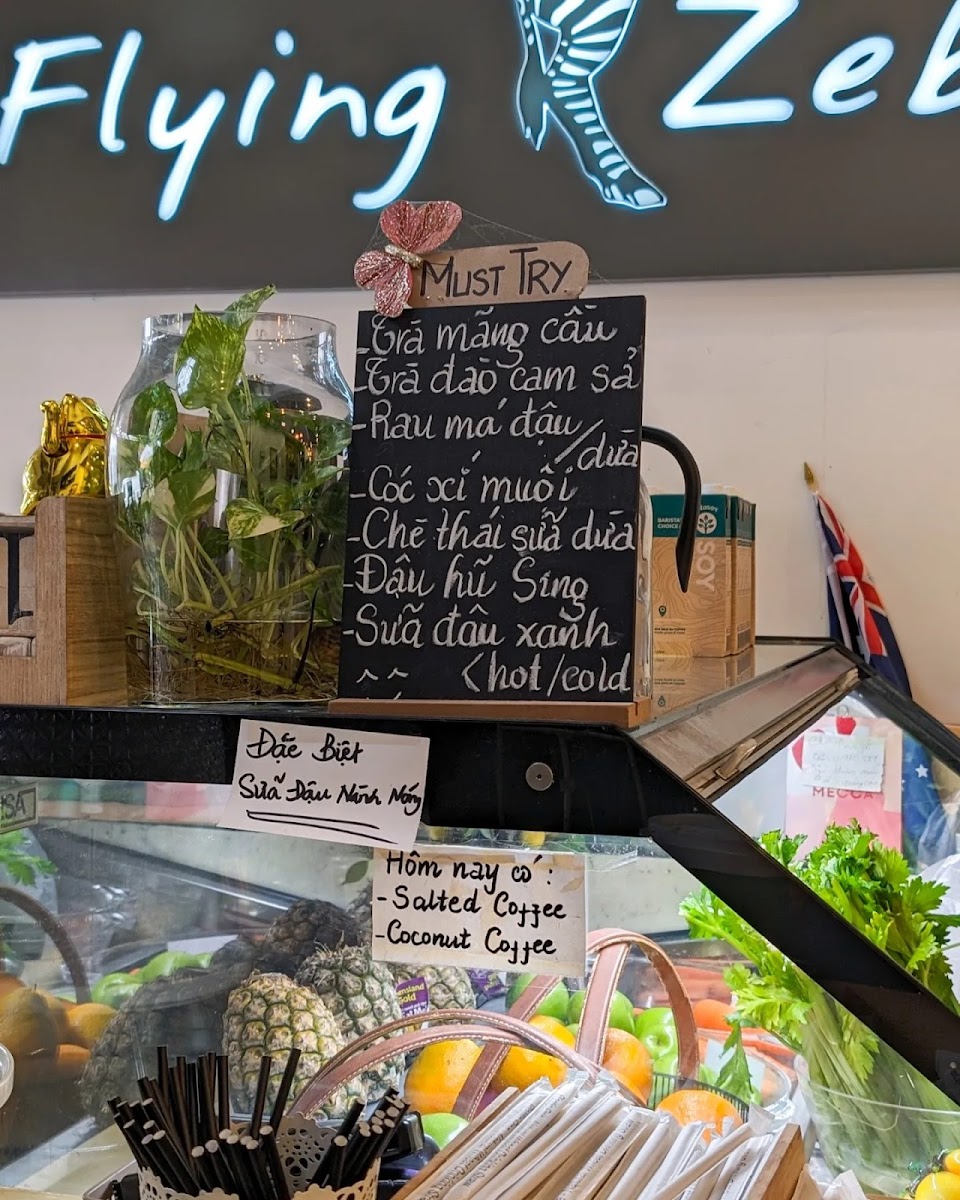 Flying Zeb
MUST TRY
-Trà mãng cầu
-Trà đào cam sả
-Rau má đậu
/dừa
-Cóc xí muội
-Chè thái sữa dừa
-Đậu hũ Sing
-Sữa đậu xanh
(hot/cold
Đặc Biệt
Sữa Đậu Nành Nóng
Hôm nay có :
-Salted Coffee
-Coconut Coffee
BARISTA
CHOICE
SOY
MECCA